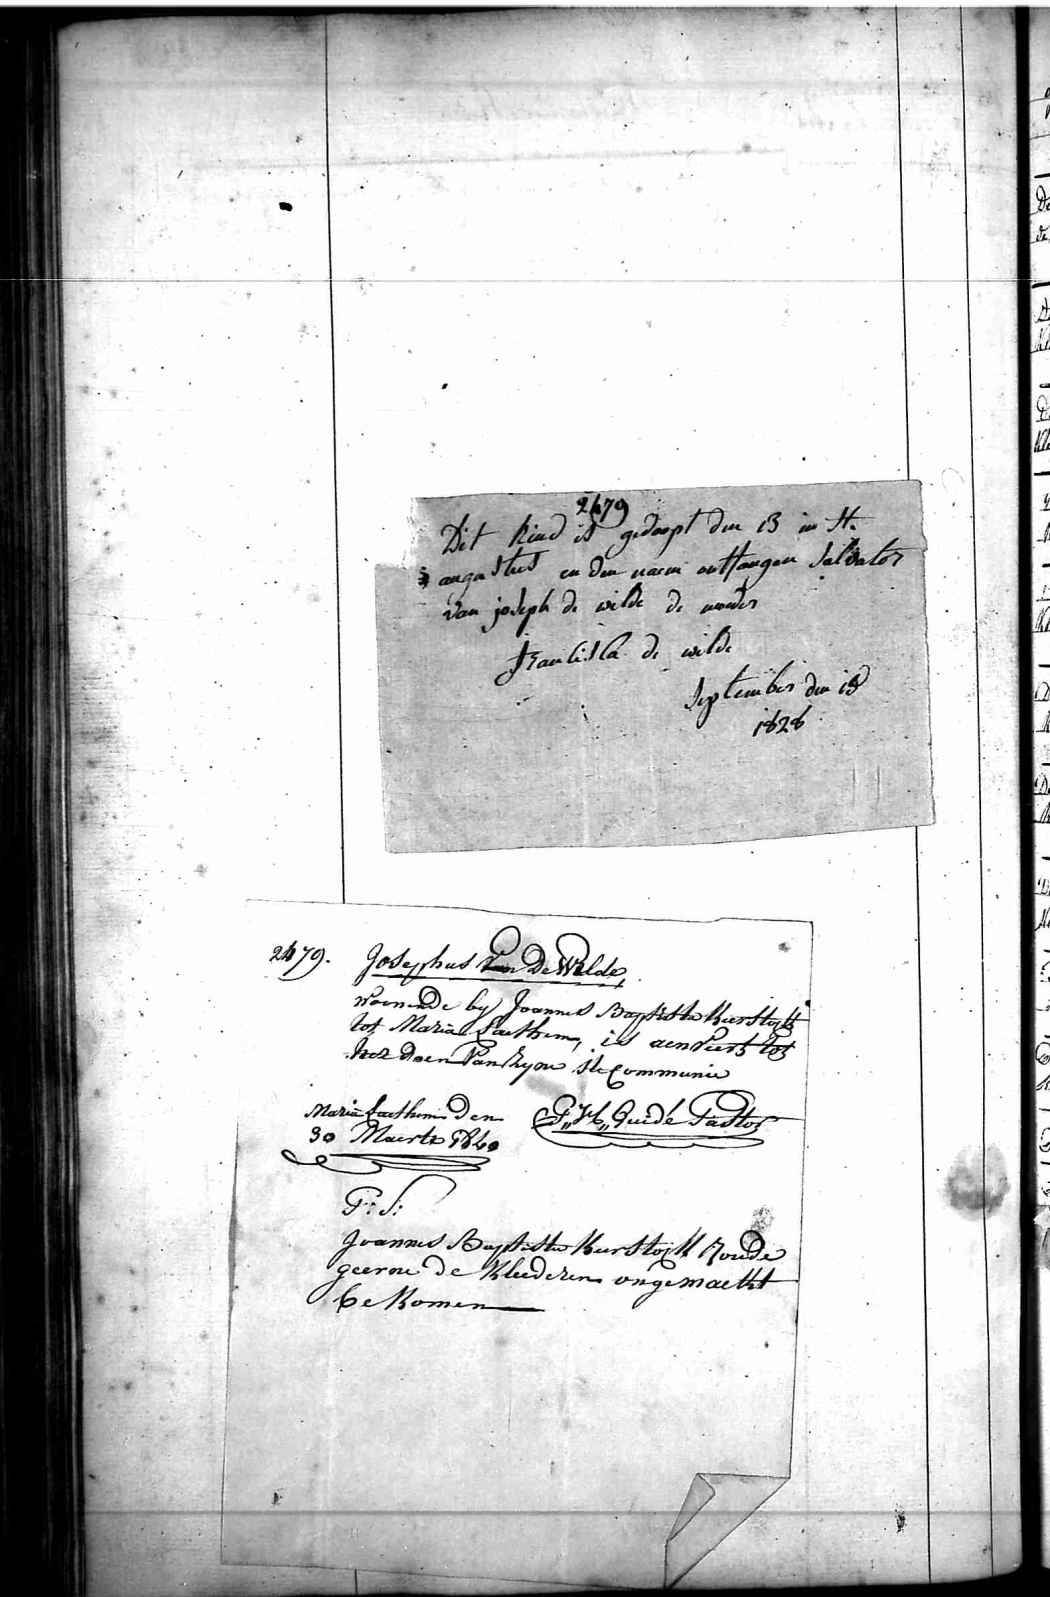 2479
Dit kind is gedoopt den 13 in St.
augustus en den naem ontfangen Salvator
van joseph de wilde de moeder
Francisca de wilde
September den 13
1828
2479. Josephus Van De Wilde,
woenende by Joannes Baptiste Kerstoytt
tot Maria Laethem, is aenveert tot
het doen van zyne ste Communie
Maria Laethem den
30 Maerte 1840
F,, H,, Guidé Pastor
P: S:
Joannes Baptiste Kerstoytt zoude
geerne de kleederen ongemaekt
bekomen